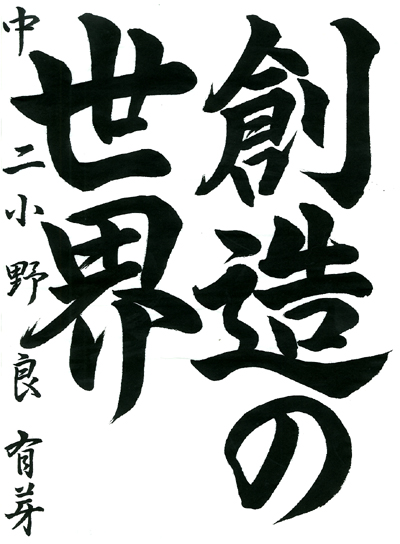 創造の
世界
中二小野良有芽